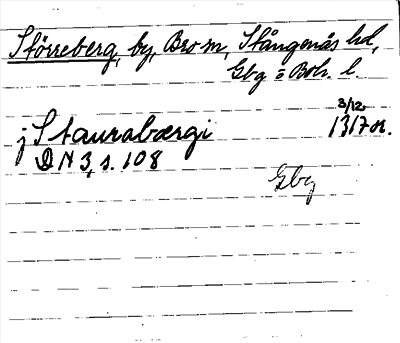 Störreberg, by, Bro sn, Stångenäs hd,
Gbg o Boh. l.
j Staurabærgi 3/12 1317 or.
DN 3, s. 108
Gbg